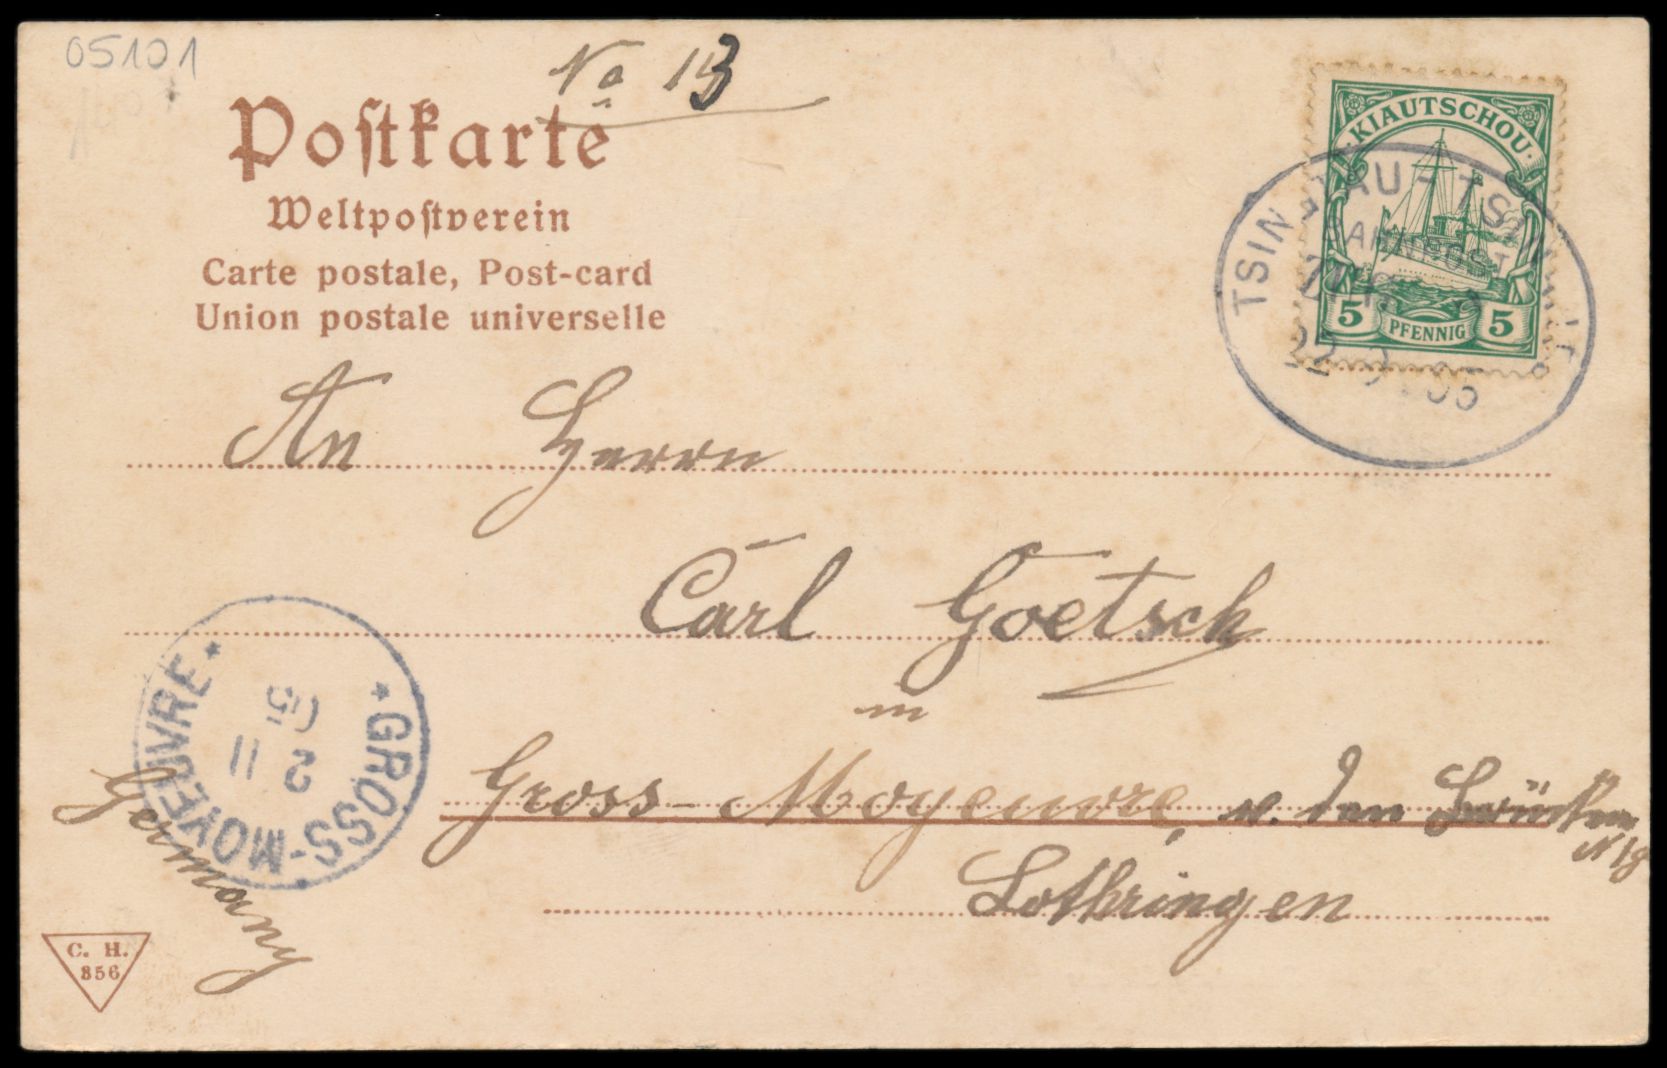 05101
No 13
Postkarte
Weltpostverein
Carte postale, Post-card
Union postale universelle
KIAUTSCHOU
5 PFENNIG 5
TSINGTAU-TSIN
BAHNPOST
ZUG
22 9 05
An Herrn
Carl Goetsch
in
Gross-Moyeuvre, v. den Brücken
N 18
Lothringen
Germany
* GROSS-MOYEUVRE *
2 11
05
C. H.
856